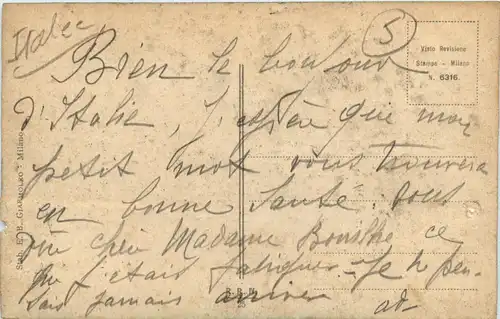 Italie
5
Visto Revisione
Stampa - Milano
N. 6316.
Bien le bonjour
d'Italie, J'espère que mon
petit mot vous trouvera
en bonne santé. vous
chère Madame ce
j'étais fatiguée - Je pen-
sais jamais arriver
Milano